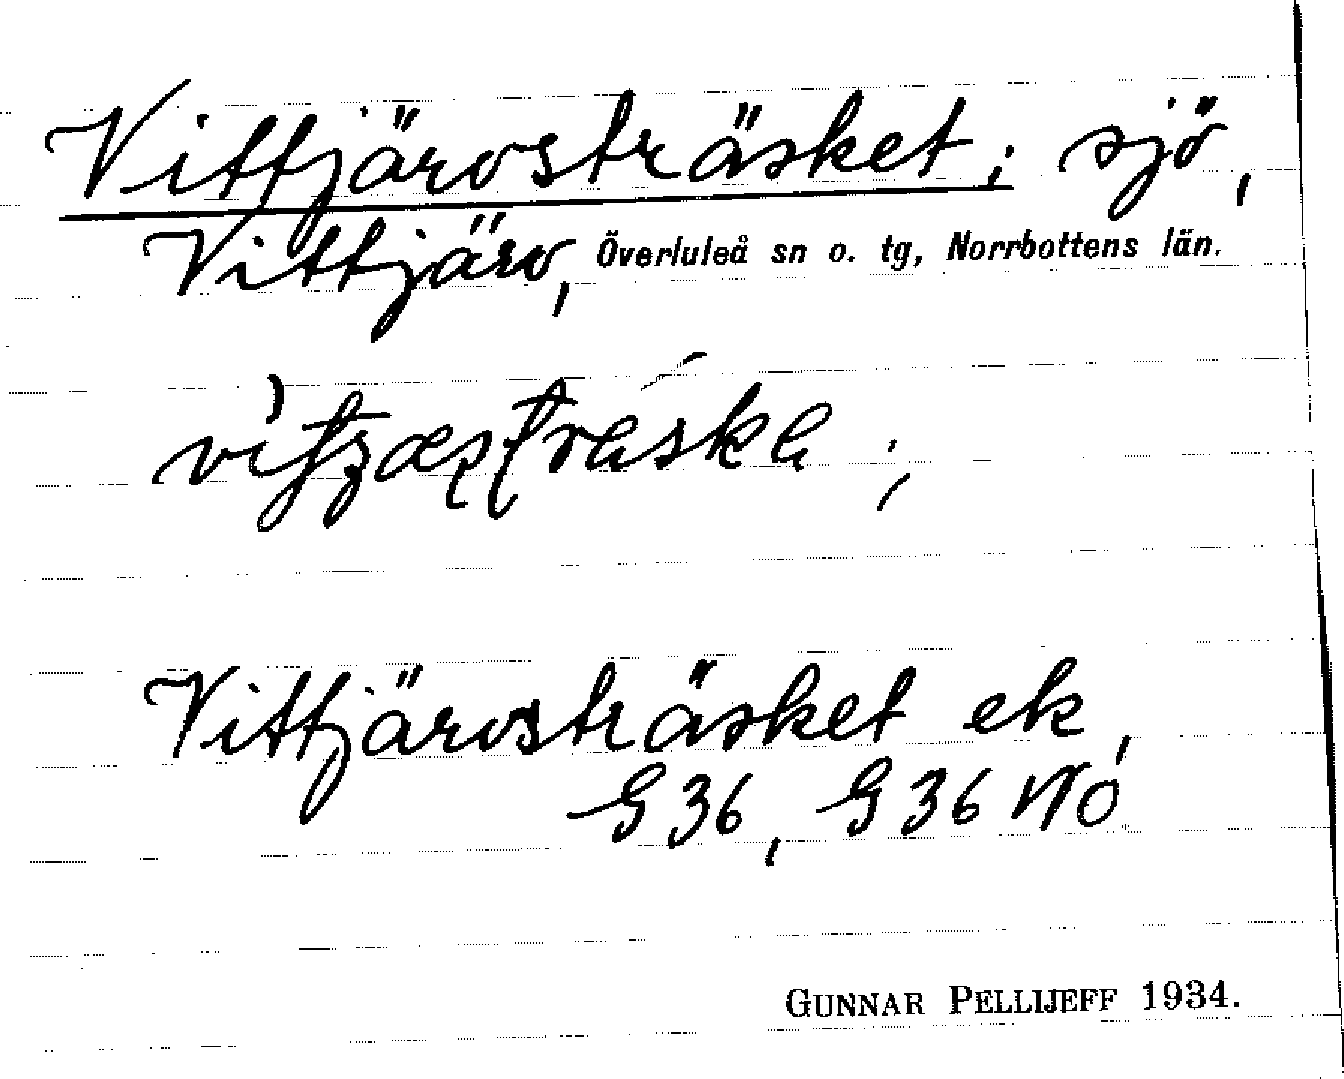 Vittjärvsträsket; sjö,
Vittjärv, Överluleå sn o. tg, Norrbottens län.
Vittjärvsträsket ek,
G 36, G 36 NO
GUNNAR PELLIJEFF 1934.